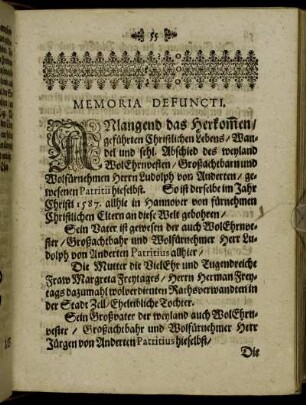 55
MEMORIA DEFUNCTI.
ANlangend das Herkom̃en/
geführten Christlichen Lebens/ Wan-
del und sehl. Abschied des weyland
WolEhrnvesten/ Großachtbarn und
Wolfürnehmen Herrn Ludolph von Anderten/ ge-
wesenen Patritii hieselbst. So ist derselbe im Jahr
Christi 1587. allhie in Hannover von fürnehmen
Christlichen Eltern an diese Welt gebohren/
Sein Vater ist gewesen der auch WolEhrnve-
ster/ Großachtbahr und Wolfürnehmer Herr Lu-
dolph von Anderten Patritius allhier/
Die Mutter die VielEhr und Tugendreiche
Fraw Margreta Freytages/ Herrn Herman Frey-
tags dazumahl wolverdienten Rathsverwandten in
der Stadt Zell/ Eheleibliche Tochter.
Sein Großvater der weyland auch WolEhrn-
vester/ Großachtbahr und Wolfürnehmer Herr
Jürgen von Anderten Patritius hieselbst/
Die